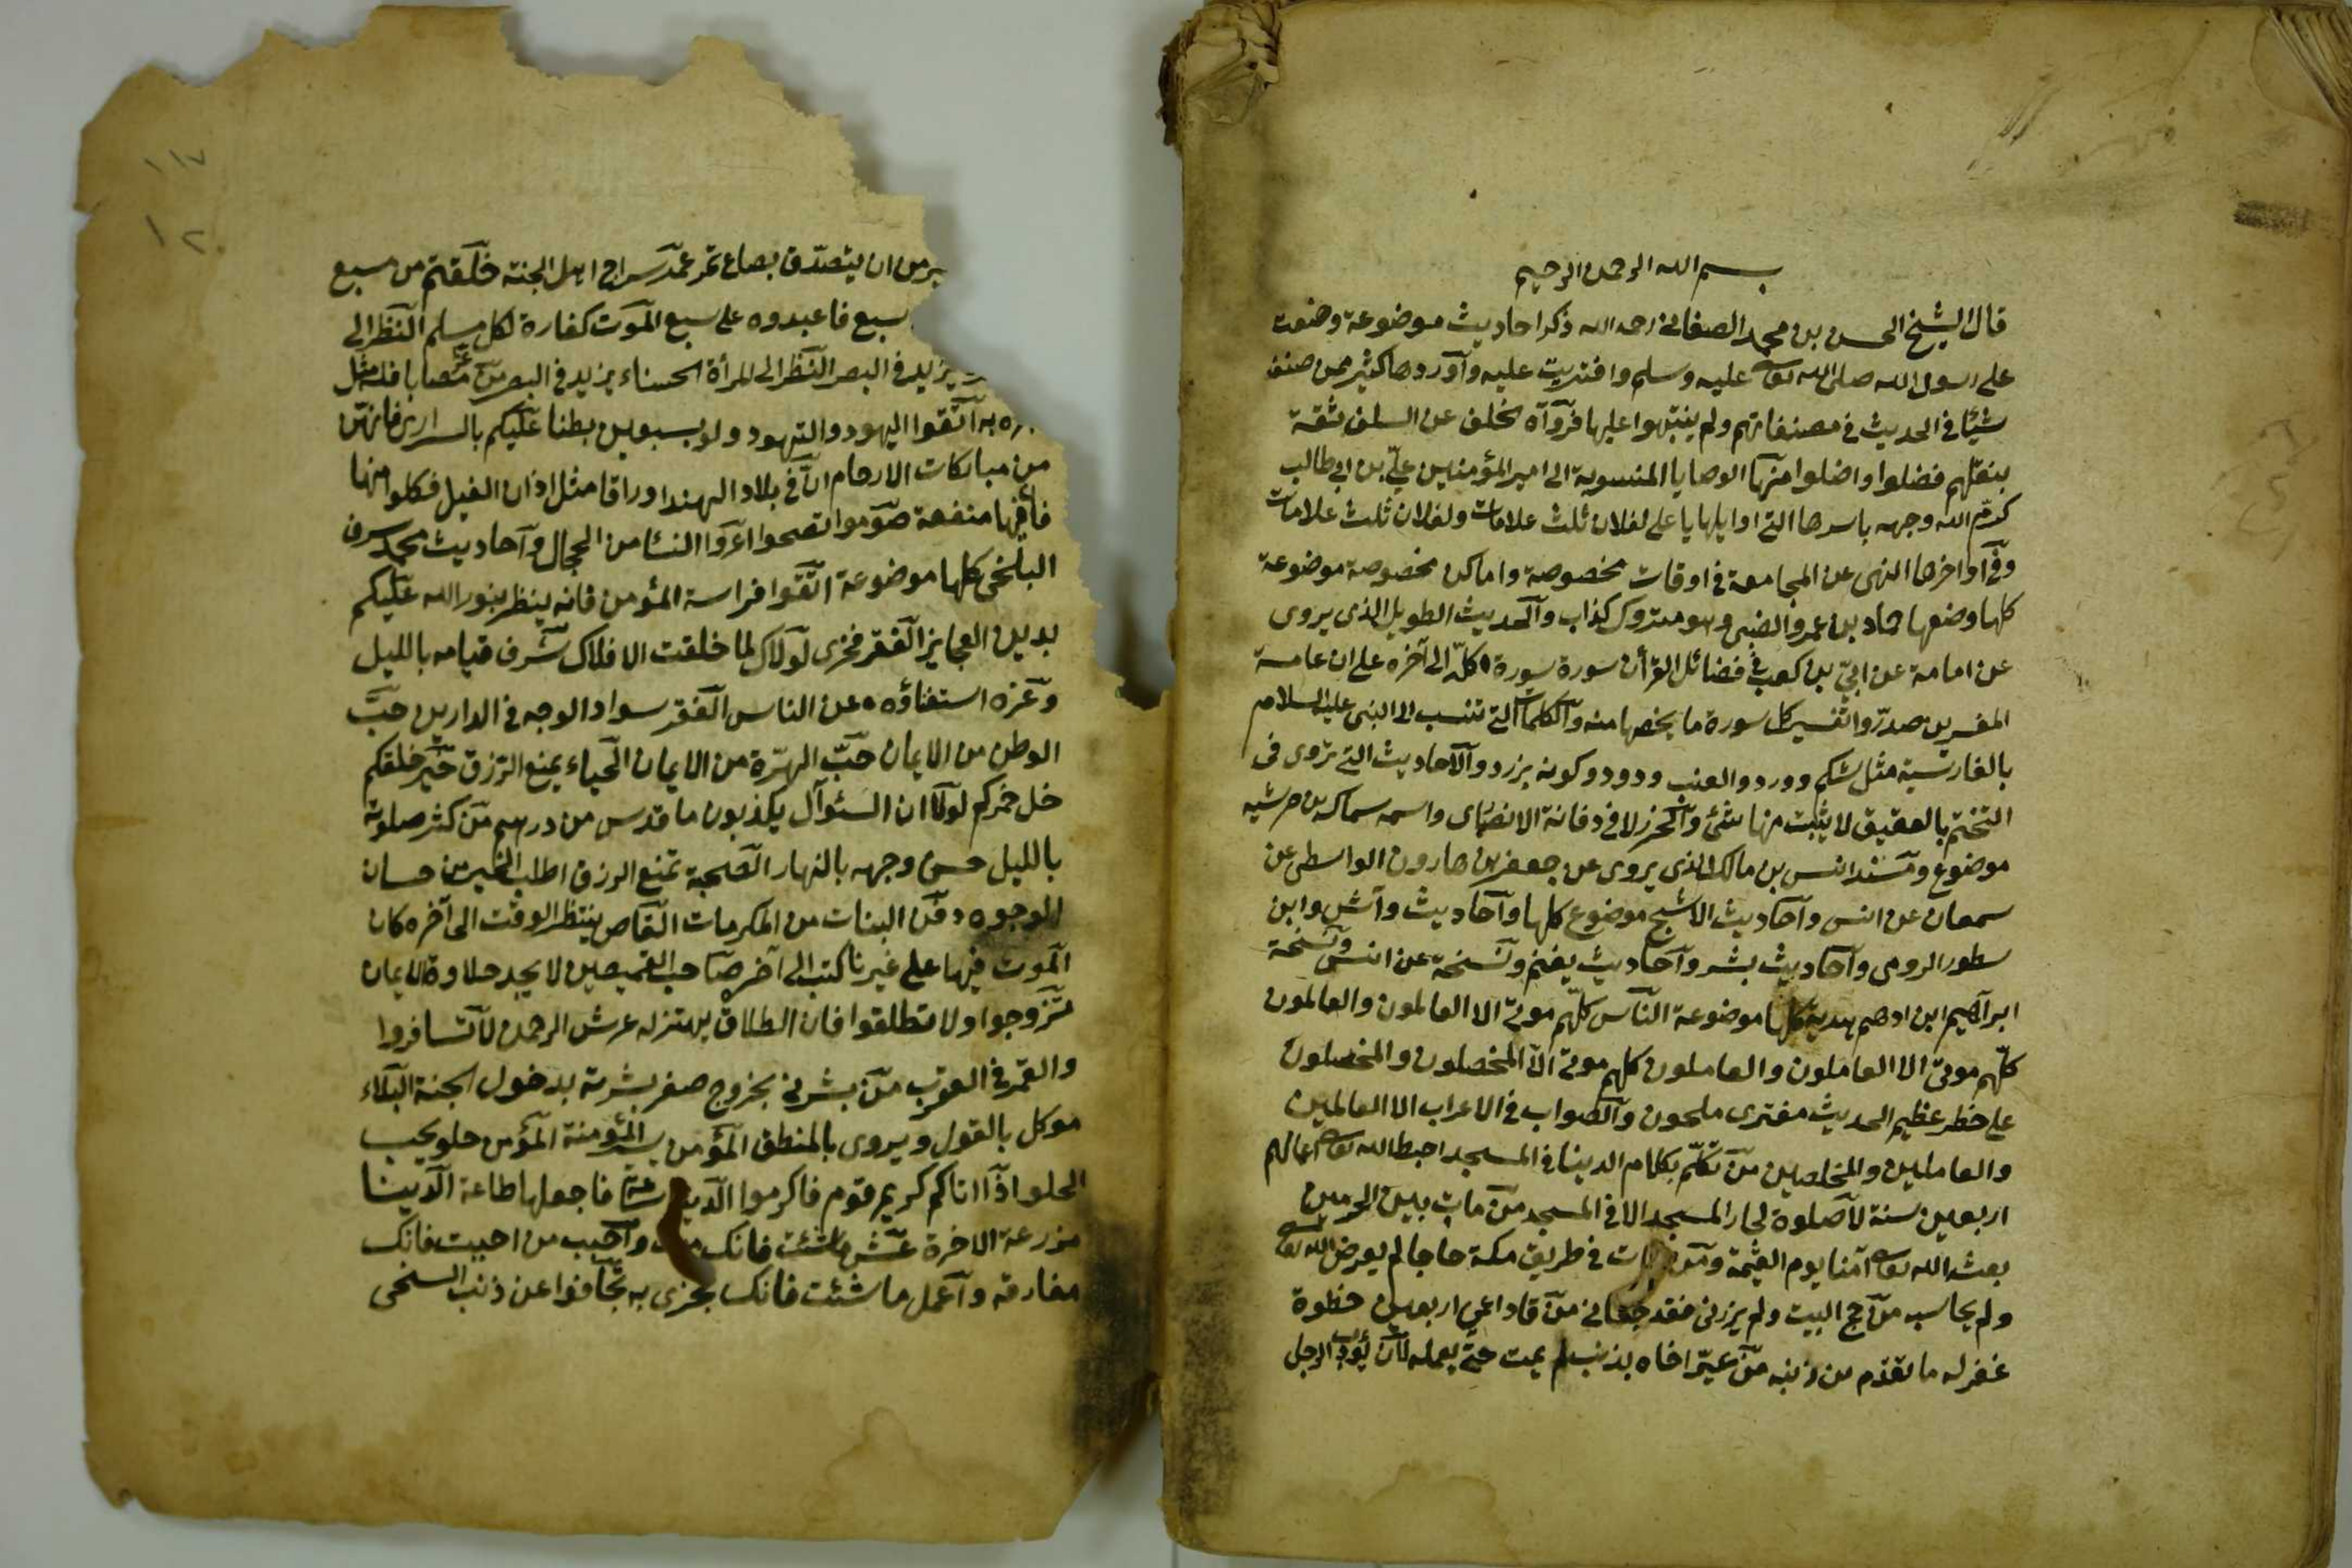 بسم الله الرحمن الرحيم
قال الشيخ الحسن بن محمد الصغاني رحمه الله ذكر احاديث موضوعة وضعت
على رسول الله صلى الله تعالى عليه وسلم وافتريت عليه وأوردها كثير ممن صنف
شيئا في الحديث في مصنفاتهم ولم ينبهوا عليها فرواه خلف عن السلف ثقة
بنقلهم فضلوا واضلوا منها الوصايا المنسوبة الى امير المؤمنين علي بن ابي طالب
كرم الله وجهه باسرها التي اولها يا علي لفلان ثلث علامات ولفلان ثلث علامات
وفي اواخرها النهي عن المجامعة في اوقات مخصوصة واماكن مخصوصة موضوعة
كلها وضعها حماد بن عمرو الضبي وهو متروك كذاب والحديث الطويل الذي يروى
عن امامة عن ابي بن كعب في فضائل القرآن سورة سورة كله الى آخره على ان عامة
المفسرين صدروا تفسير كل سورة ما يخصها منه والكلمات التي تنسب الى النبي عليه السلام
بالفارسية مثل شكم ودرد والعنب ودودو والاحاديث التي تروى في
التختم بالعقيق لا يثبت منها شئ واسمه سماك بن خرشه
موضوع ومسند انس بن مالك الذي يروى عن جعفر بن هارون الواسطي عن
سمعان عن انس وأحاديث الاشج موضوع كلها وأحاديث وابن
سطور الرومي وأحاديث بشر وأحاديث يغنم ونسخة عن انس ونسخة
ابراهيم ابن ادهم كلها موضوعة الناس كلهم موتى الا العالمون والعالمون
كلهم موتى الا العاملون والعاملون كلهم موتى الا المخلصون والمخلصون
على خطر عظيم الحديث مفترى ملحون والصواب في الاعراب الا العالمين
والعاملين والمخلصين من تكلم بكلام الدنيا في المسجد احبط الله تعالى اعمالهم
اربعين سنة لا صلوة لجار المسجد الا في المسجد من مات بين الحرمين
بعثه الله تعالى آمنا يوم القيمة ومن مات في طريق مكة حاجا لم يعرض الله تعالى
ولم يحاسب من حج البيت ولم يزرني فقد جفاني من قاد اعمى اربعين خطوة
غفر له ما تقدم من ذنبه من عير اخاه بذنب لم يمت حتى يعمله لان يؤدب الرجل
من ان يتصدق بصاع عمر سراج اهل الجنة خلقتم من سبع
سبع فاعبدوه على سبع الموت كفارة لكل مسلم النظر الى
يزيد في البصر النظر الى المرأة الحسناء يزيد في البصر من
به اتقوا اليهود والهنود ولو بسبعين بطنا عليكم بالسراري فانهن
من مباركات الارحام ان في بلاد الهند اوراقا مثل اذان الفيل فكلوا منها
فان فيها منفعة صوموا تصحوا اعروا النساء من الحجال وأحاديث محمد سرف
البلخي كلها موضوعة اتقوا فراسة المؤمن فانه ينظر بنور الله عليكم
بدين العجايز الفقر فخري لولاك لما خلقت الافلاك شرف قيامه بالليل
وعزه استغناؤه عن الناس الفقر سواد الوجه في الدارين حب
الوطن من الايمان حب الهرة من الايمان الحياء يمنع الرزق خير خلكم
خل خمركم لولا ان السئوال يكذبون ما قدس من درهم من كثر صلوته
بالليل حسن وجهه بالنهار الصبحة تمنع الرزق اطلب الخير من حسان
الوجوه دفن البنات من المكرمات القاص ينتظر المقت الى آخره كان
الموت فيها على غيرنا كتب الى آخر صاحب القميصين لا يجد حلاوة الايمان
تزوجوا ولا تطلقوا فان الطلاق يهتز له عرش الرحمن لا تسافروا
والقمر في العقرب من بشرني بخروج صفر بشرته بدخول الجنة البلاء
موكل بالقول ويروى بالمنطق المؤمن يسير المؤمنة المؤمن حلو يحب
الحلو اذا اتاكم كريم قوم فاكرموا الدنيا ساعة فاجعلها طاعة الدنيا
مزرعة الاخرة عش ما شئت فانك ميت وأحبب من احببت فانك
مفارقه وأعمل ما شئت فانك تجزى به تجافوا عن ذنب السخي